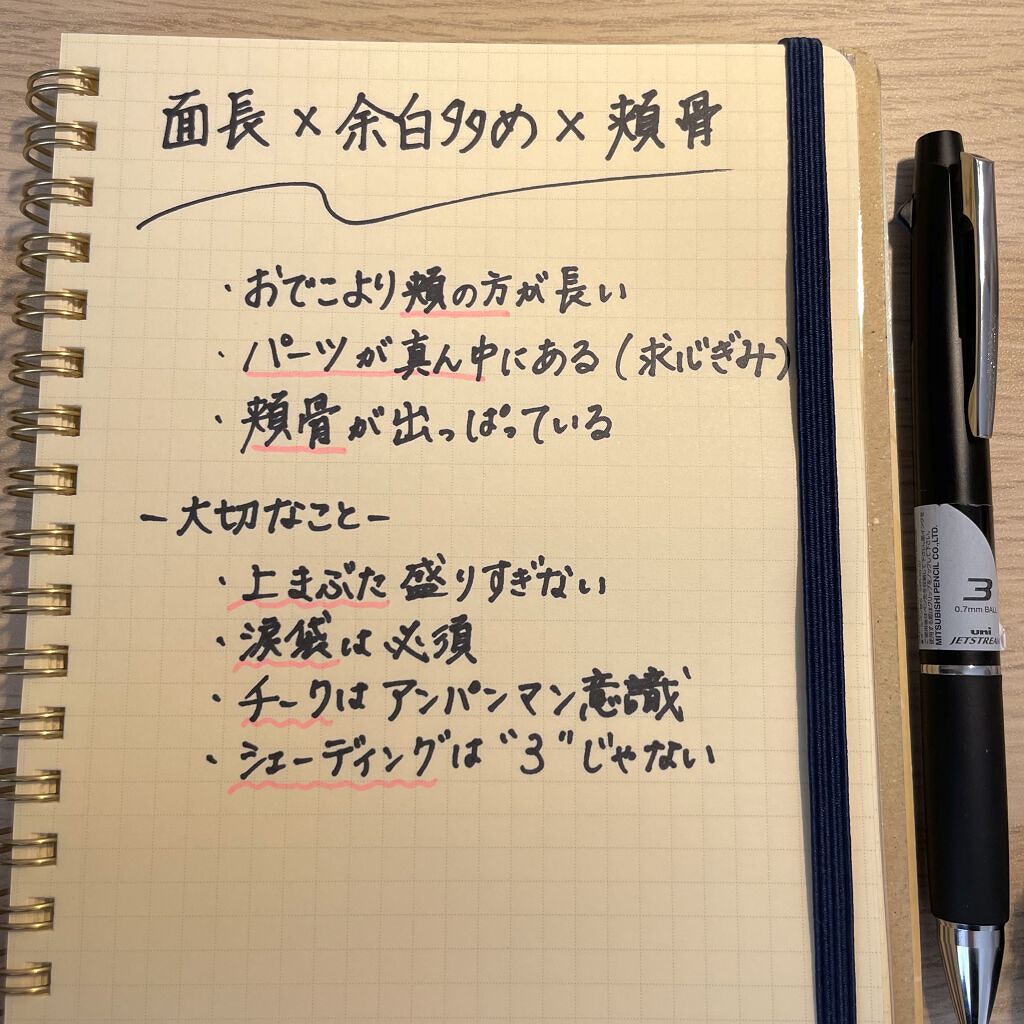 面長×余白多め×頬骨
・おでこより頬の方が長い
・パーツが真ん中にある(求心ぎみ)
・頬骨が出っぱっている
－大切なこと－
・上まぶた盛りすぎない
・涙袋は必須
・チークはアンパンマン意識
・シェーディングは"3"じゃない
MITSUBISHI PENCIL CO.,LTD.
3
0.7mm BALL
uni
JETSTREAM